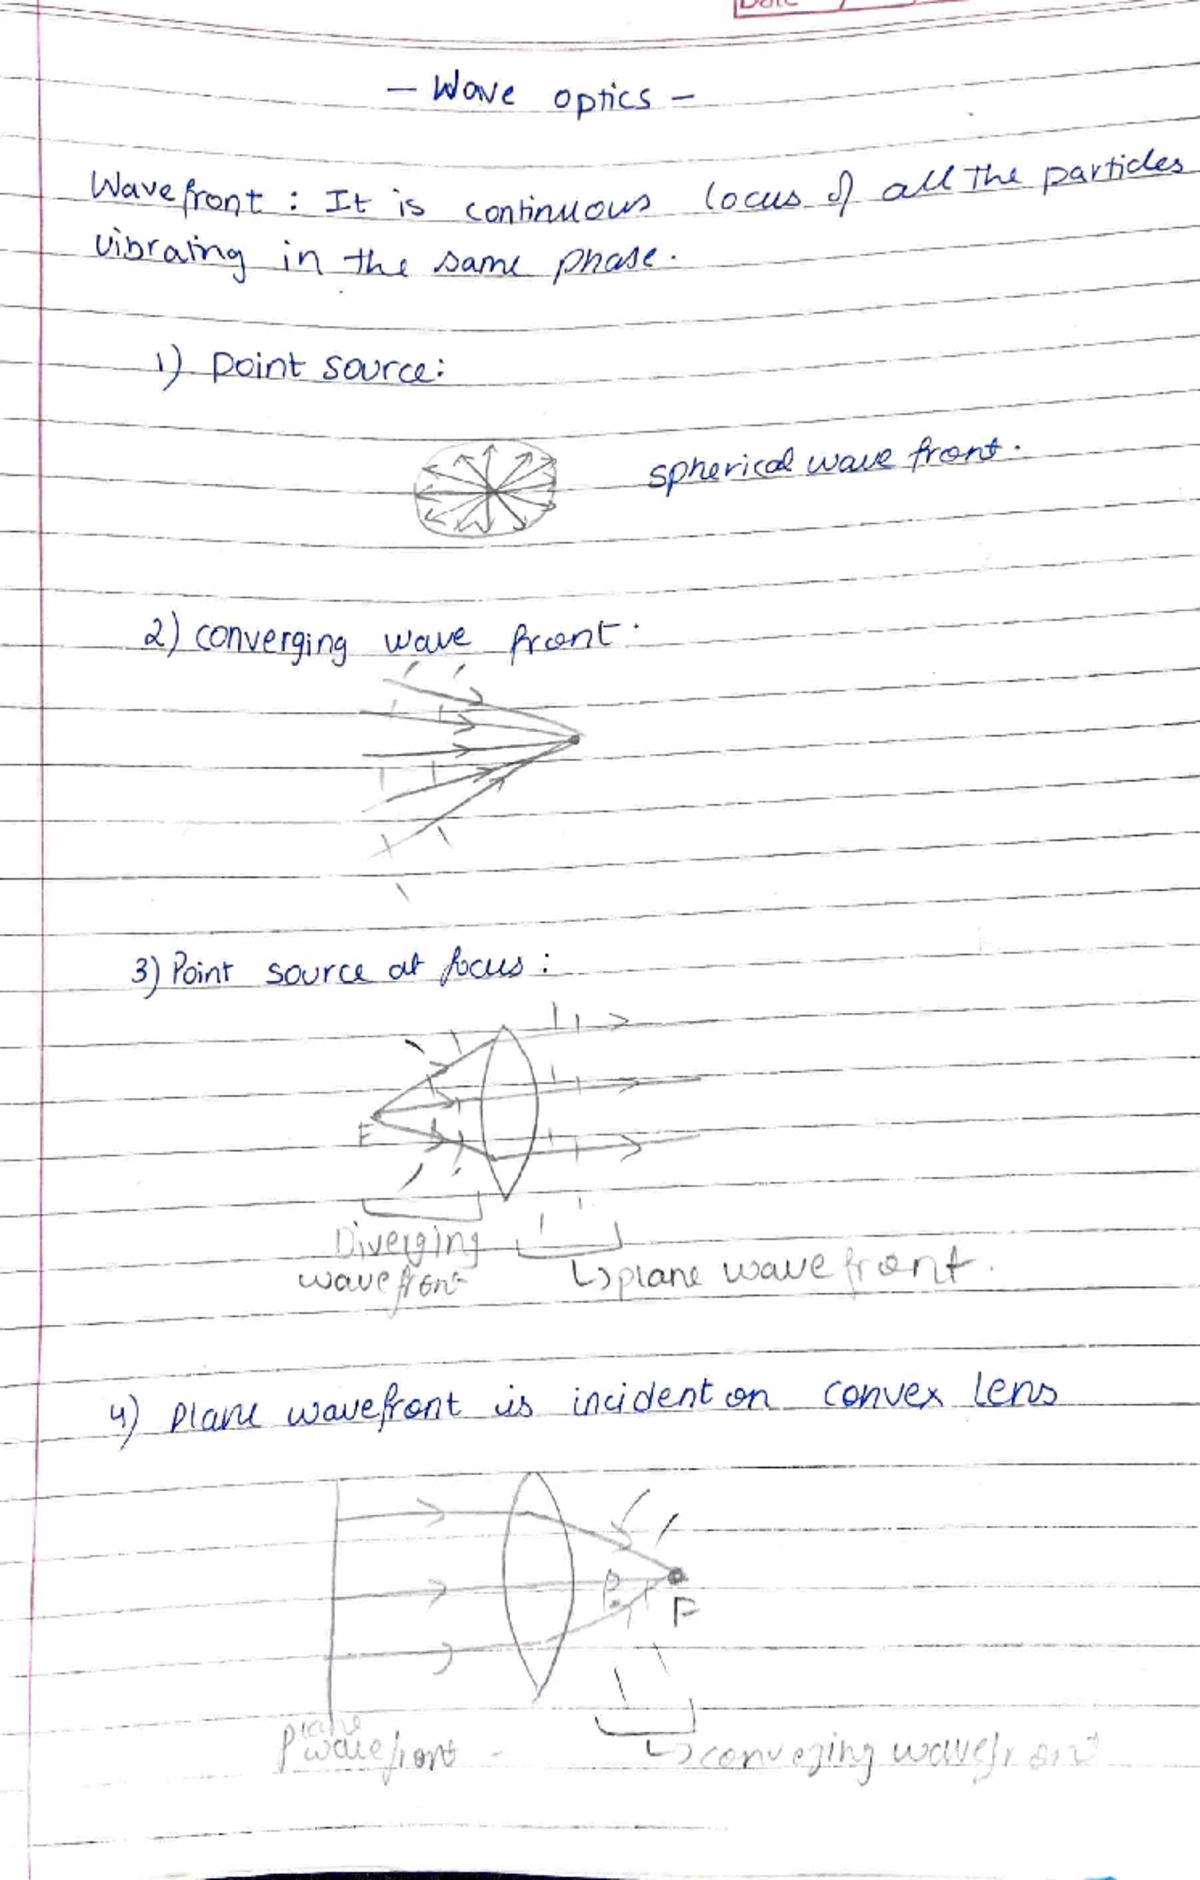 Date
- Wave optics -
Wavefront : It is continuous locus of all the particles
vibraing in the same phase.
1) Point source:
spherical wave front.
2) converging wave front.
3) Point source at focus :
F
Diverging
wavefront
plane wavefront.
4) Plane wavefront is incident on convex lens
F
Plane
wavefront
convezing wavefront